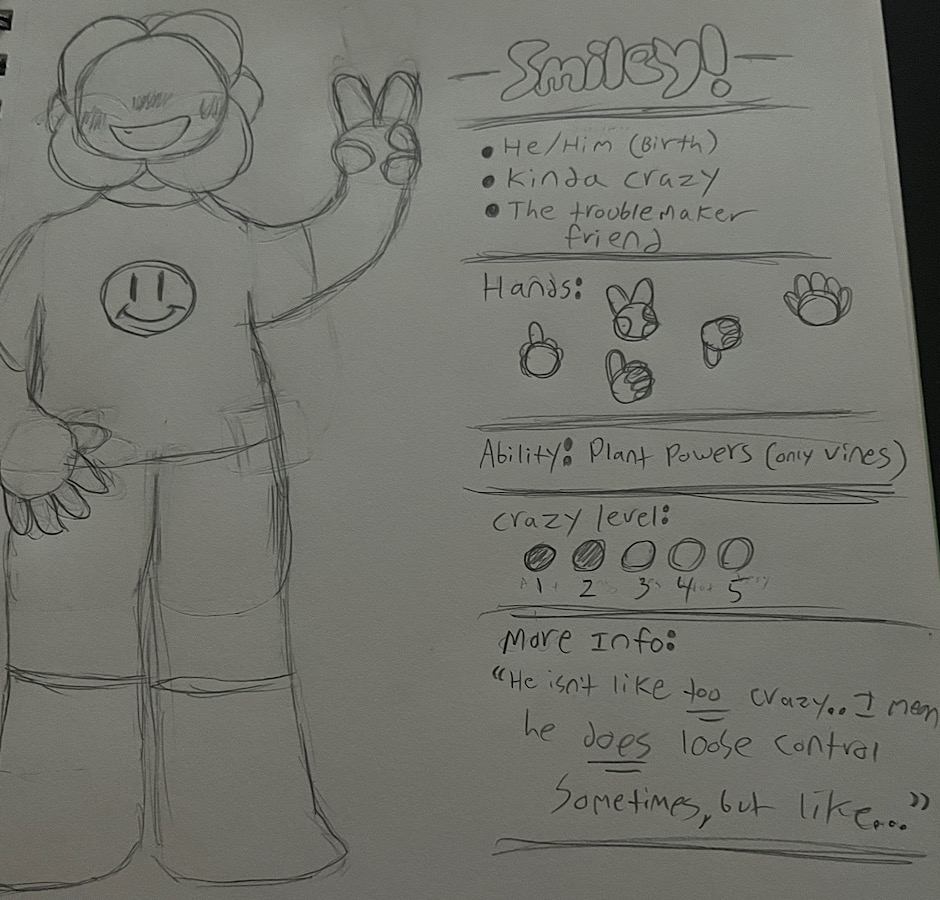 -Smiley!-
• He/Him (Birth)
• Kinda crazy
• The troublemaker
friend
Hands:
Ability: Plant Powers (only vines)
Crazy level:
1 2 3 4 5
More Info:
"He isn't like too crazy.. I mean
he does loose control
Sometimes, but like..."